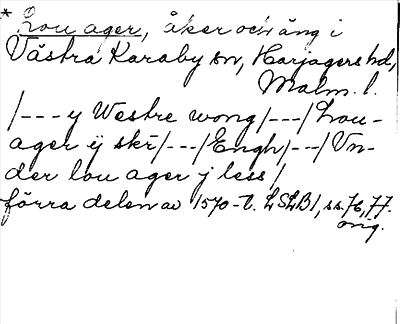 * Lou ager, åker och äng i
Västra Karaby sn, Harjagers hd,
Malm. l.
/--- y Westre wong /---/ Lou-
ager ÿ skr̄ /---/ Engh /---/ Vn-
der lou ager j less /
förra delen av 1570-t. LSLB1, ss. 76, 77.
orig.